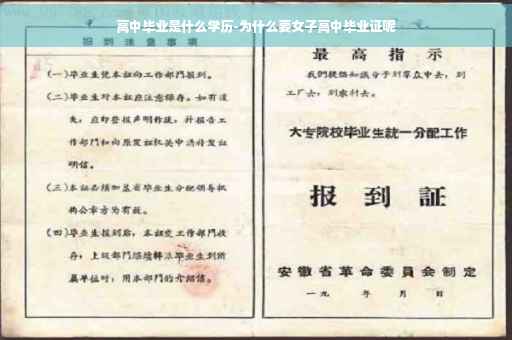 高中毕业是什么学历-为什么要女子高中毕业证呢
报到注意事项
(一)毕业生凭本证向工作部门报到。
(二)毕业生对本证应注意保存。如有遗
失，应即登报声明作废，并报告工
作部门和向原发证机关申请补发证
明信。
(三)本证必须加盖省毕业生分配领导机
构公章方为有效。
(四)毕业生报到后，本证交工作部门收
存；上级部门继续转派毕业生到所
属单位时，用本部门的介绍信。
最高指示
我们提倡知识分子到群众中去，到
工厂去，到农村去。
大专院校毕业生统一分配工作
报到証
安徽省革命委員会制定
一九 年 月 日